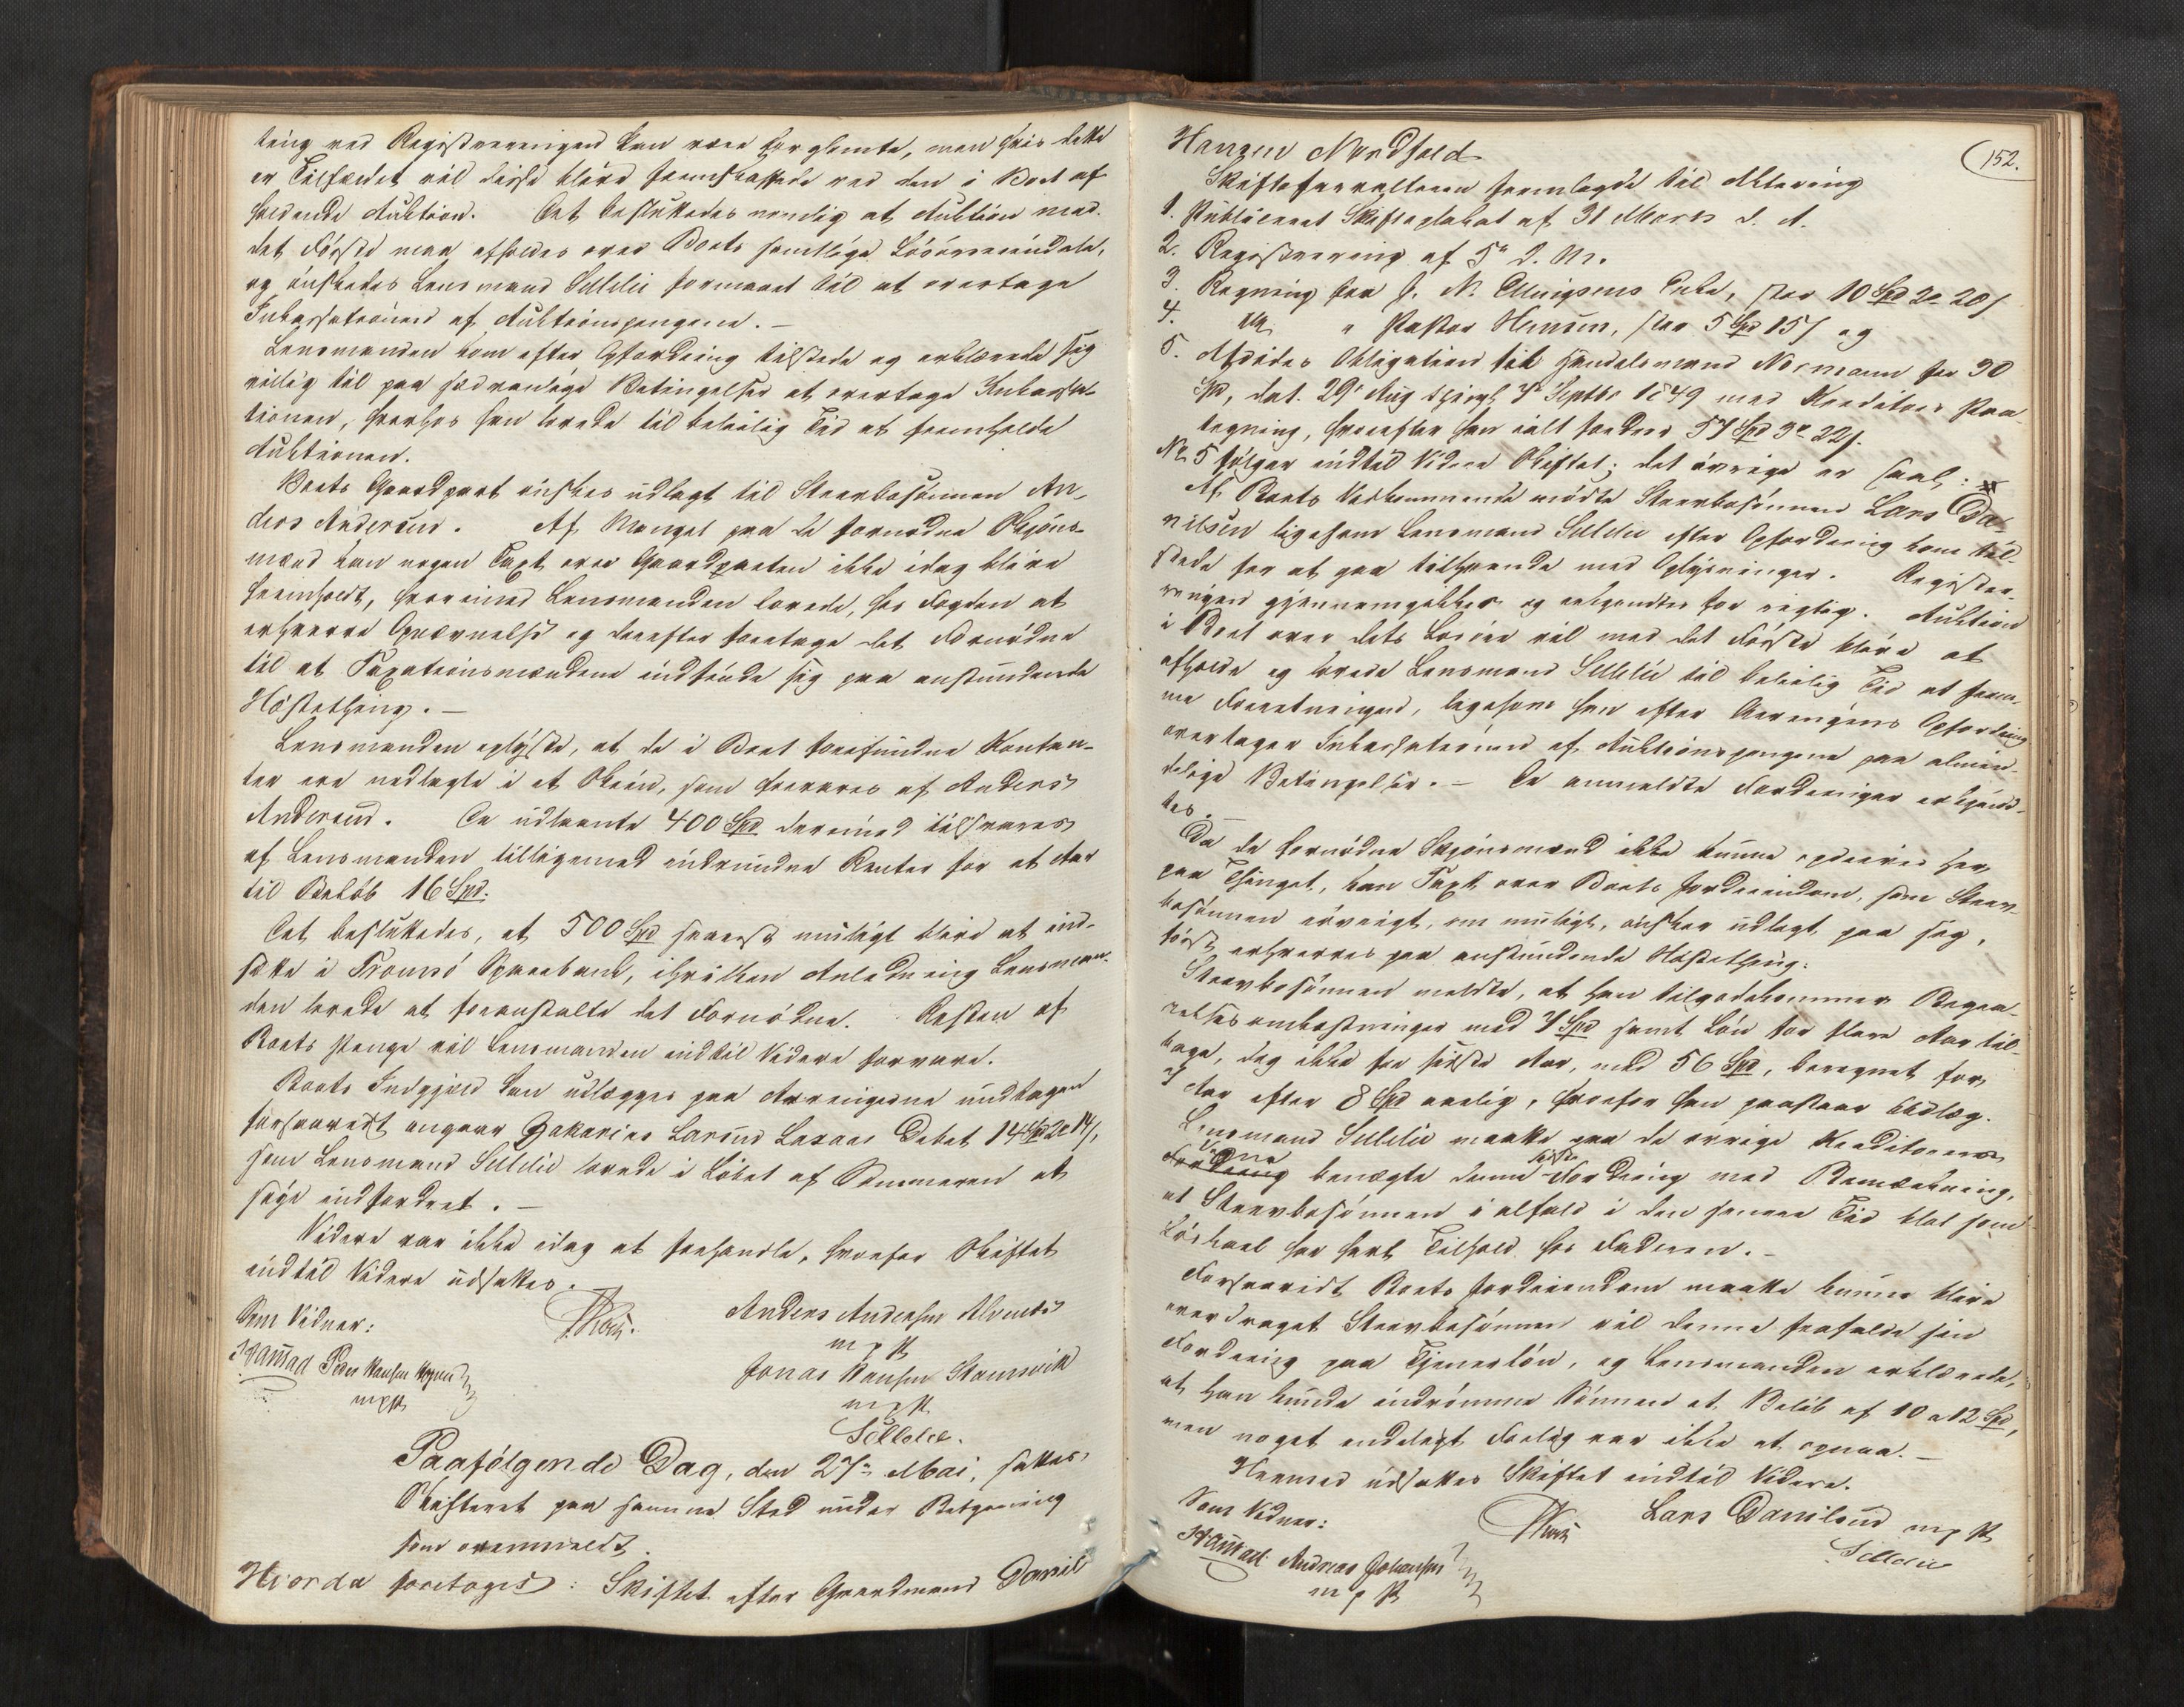 ting ved Registreringen kan være forglemte, men hvis dette
er Tilfældet vil disse blive fremskaffede ved den i Boet af-
holdende Auktion. Det besluttedes nemlig at Auktion med
det Første maa afholdes over Boets samtlige Løsøreeiendele,
og ønskedes Lensmand Sellelie formaaet til at overtage
Inkassationen af Auktionspengene. —
Lensmanden kom efter Opfordring tilstede og erklærede sig
villig til paa sædvanlige Betingelser at overtage Inkassa-
tionen, hvorhos han lovede til beleilig Tid at fremholde
Auktionen.
Boets Gaardpart ønskes udlagt til Stervbosønnen An-
ders Andersen. Af Mangel paa de fornødne Skjøns-
mænd kan nogen Taxt over Gaardparten ikke idag blive
fremholdt, hvorimod Lensmanden lovede, hos Fogden at
erhverve Opnævnelse og derefter foretage det Fornødne
til at Taxationsmændene indfinde sig paa anstundende
Høstething. —
Lensmanden oplyste, at de i Boet forefundne Kontan-
ter ere nedlagte i et Skrin, som forvares af Anders
Andersen. De udlaante 400 Spd derimod tilsvares
af Lensmanden tilligemed indvundne Renter for et Aar
til Beløb 16 Spd.
Det besluttedes, at 500 Spd snarest muligt blive at ind-
sætte i Tromsø Sparebank, i hvilken Anledning Lensman-
den lovede at foranstalte det Fornødne. Resten af
Boets Penge vil Lensmanden indtil Videre forvare.
Boets Indgjæld kan udlægges paa Arvingerne undtagen
forsaavidt angaar Zakarias Larsens Debet 14 Spd 2 14 s,
som Lensmand Sellelie lovede i Løbet af Sommeren at
søge indfordret. —
Videre var ikke idag at forhandle, hvorfor Skiftet
indtil Videre udsættes.
Som Vidner: Anders Andersen
Peder Hansen m p P
m p P Jonas Hansen
m p P
Sellelie.
Paafølgende Dag, den 27de Mai, sattes
Skifteret paa samme Sted under Betjening
som ovenmeldt.
Hvorda foretoges: Skiftet efter Gaardmand Daniel
152.
Hansen Nordfold
Skifteforvalteren fremlagde til Aktering
1. Publiceret Skifteplakat af 31 Marts d. A.
2. Registrering af 5te d. M.
3. Regning fra J. N. Ellingsens Enke, stor 10 Spd 2 20 s
4. Do " Pastor Hansen, stor 5 Spd 15 s og
5. Afdødes Obligation til Handelsmand Normann for 90
Spd, dat. 29de Aug thingl. 7de Septbr 1849 med Kreditors Paa-
tegning, hvorefter han ialt fordrer 57 Spd 3 22 s.
No 5 følger indtil Videre Skiftet; det øvrige er saal:
Af Boets Vedkommende mødte Stervbosønnen Lars Da-
nilsen ligesom Lensmand Sellelie efter Opfordring kom til-
stede for at gaa tilhaande med Oplysninger. Registre-
ringen gjennemgikkes og erkjendtes for rigtig. Auktion
i Boet over dets Løsøre vil med det Første blive at
afholde og lovede Lensmand Sellelie til beleilig Tid at frem-
me Forretningen, ligesom han efter Arvingens Opfordring
overtager Inkassationen af Auktionspengene paa almin-
delige Betingelser. — De anmeldte Fordringer erkjend-
tes.
Da de fornødne Skjønsmænd ikke kunne opdrives her
paa Thinget, kan Taxt over Boets Jordeiendom, som Sterv-
bosønnen iøvrigt, om muligt, ønsker udlagt paa sig,
først erhverves paa anstundende Høstething.
Stervbosønnen meldte, at han tilgodekommer Begra-
velsesomkostninger med 7 Spd samt Løn for flere Aar til-
bage, dog ikke for sidste Aar, med 56 Spd, beregnet for
Aar efter 8 Spd aarlig, hvorfor han paastaar Udlæg.
Lensmand Sellelie maatte paa de øvrige Kreditorers
Vegne benægte denne sidste Fordring med Bemærkning,
at Stervbosønnen i alfald i den senere Tid blot som
Løskarl har havt Tilhold hos Faderen. —
Forsaavidt Boets Jordeiendom maatte kunne blive
overdraget Stervbosønnen vil denne frafalde sin
Fordring paa Tjenerløn, og Lensmanden erklærede,
at han kunde indrømme Sønnen et Beløb af 10 a 12 Spd,
men noget endeligt Forlig var ikke at opnaa. —
Hermed udsattes Skiftet indtil Videre.
Som Vidner: Lars Danilsen m p P
Andreas Johansen Sellelie
m p P